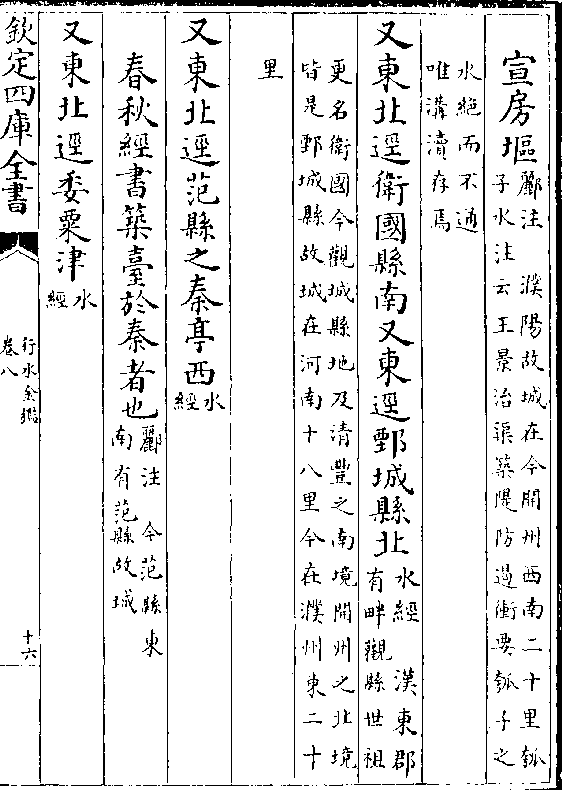 宣房堰酈注　濮陽故城在今開州西南二十里瓠
子水注云王景治渠築隄防遏衝要瓠子之
水絕而不通
唯溝瀆存焉
又東北逕衛國縣南又東逕鄄城縣北水經　漢東郡
有畔觀縣世祖
更名衛國今觀城縣地及清豐之南境開州之北境
皆是鄄城縣故城在河南十八里今在濮州東二十
里
又東北逕范縣之秦亭西水經
春秋經書築臺於秦者也酈注　今范縣東
南有范縣故城
又東北逕委粟津水經
欽定四庫全書
行水金鑑
卷八
十六